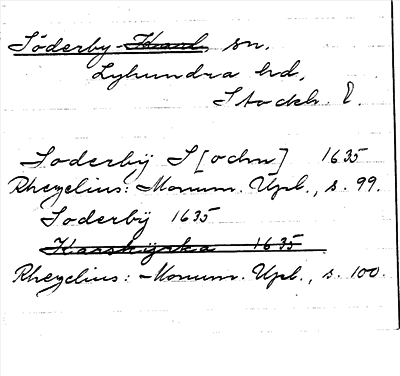 Söderby-Karl, sn.
Lyhundra hd,
Stockh. l.
Soderbij S[ochn] 1635
Rhezelius: Monum. Upl., s. 99.
Soderbij 1635
Kaarskijrka 1635
Rhezelius: Monum. Upl., s. 100.